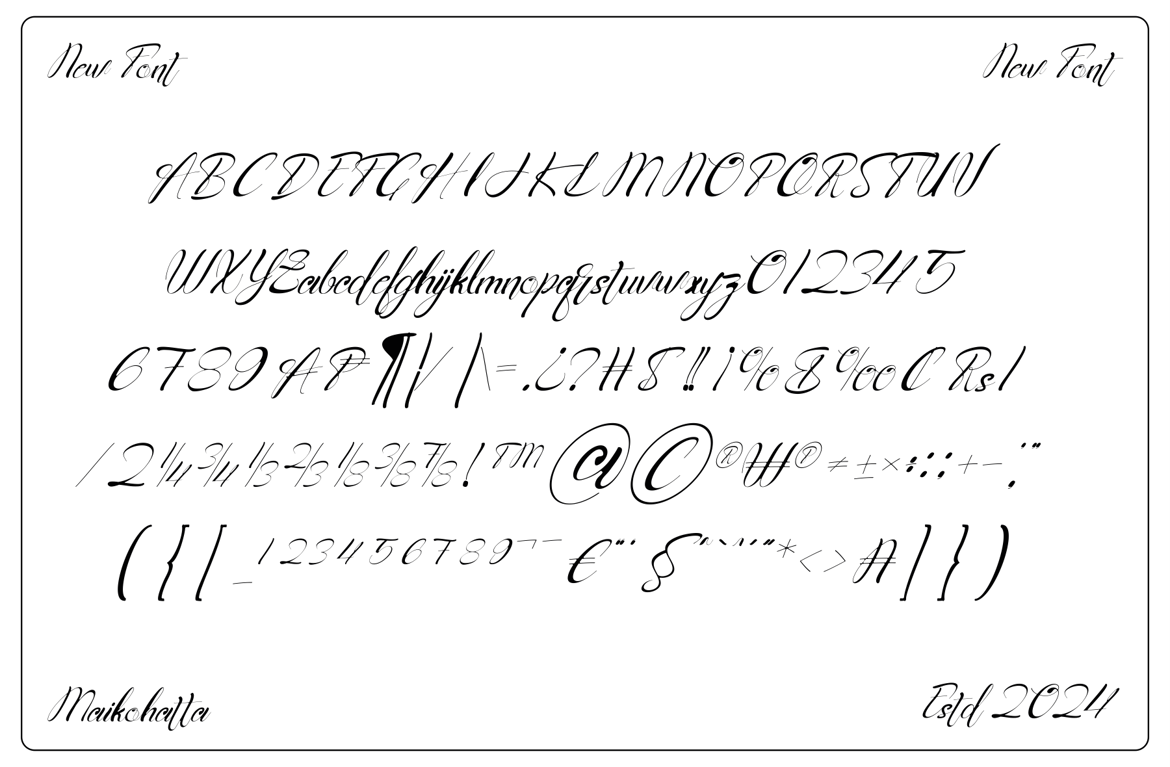 New Font
New Font
ABCDEFGHIJKLMNOPQRSTUV
WXYZabcdefghijklmnopqrstuvwxyz012345
6789 ¶ ¦ / | \ = . ¿ ? # ! ¡ % & ‰ Rs /
/ 2 ¼ ¾ ⅓ ⅔ ⅛ ⅜ ⅞ ! ™ @ © ® ₩ ℗ ≠ ± × ÷ : ; + −
( { [ _ 1 2 3 4 5 6 7 8 9 ¬ € § * < > ] } )
Maikohatta
Estd 2024